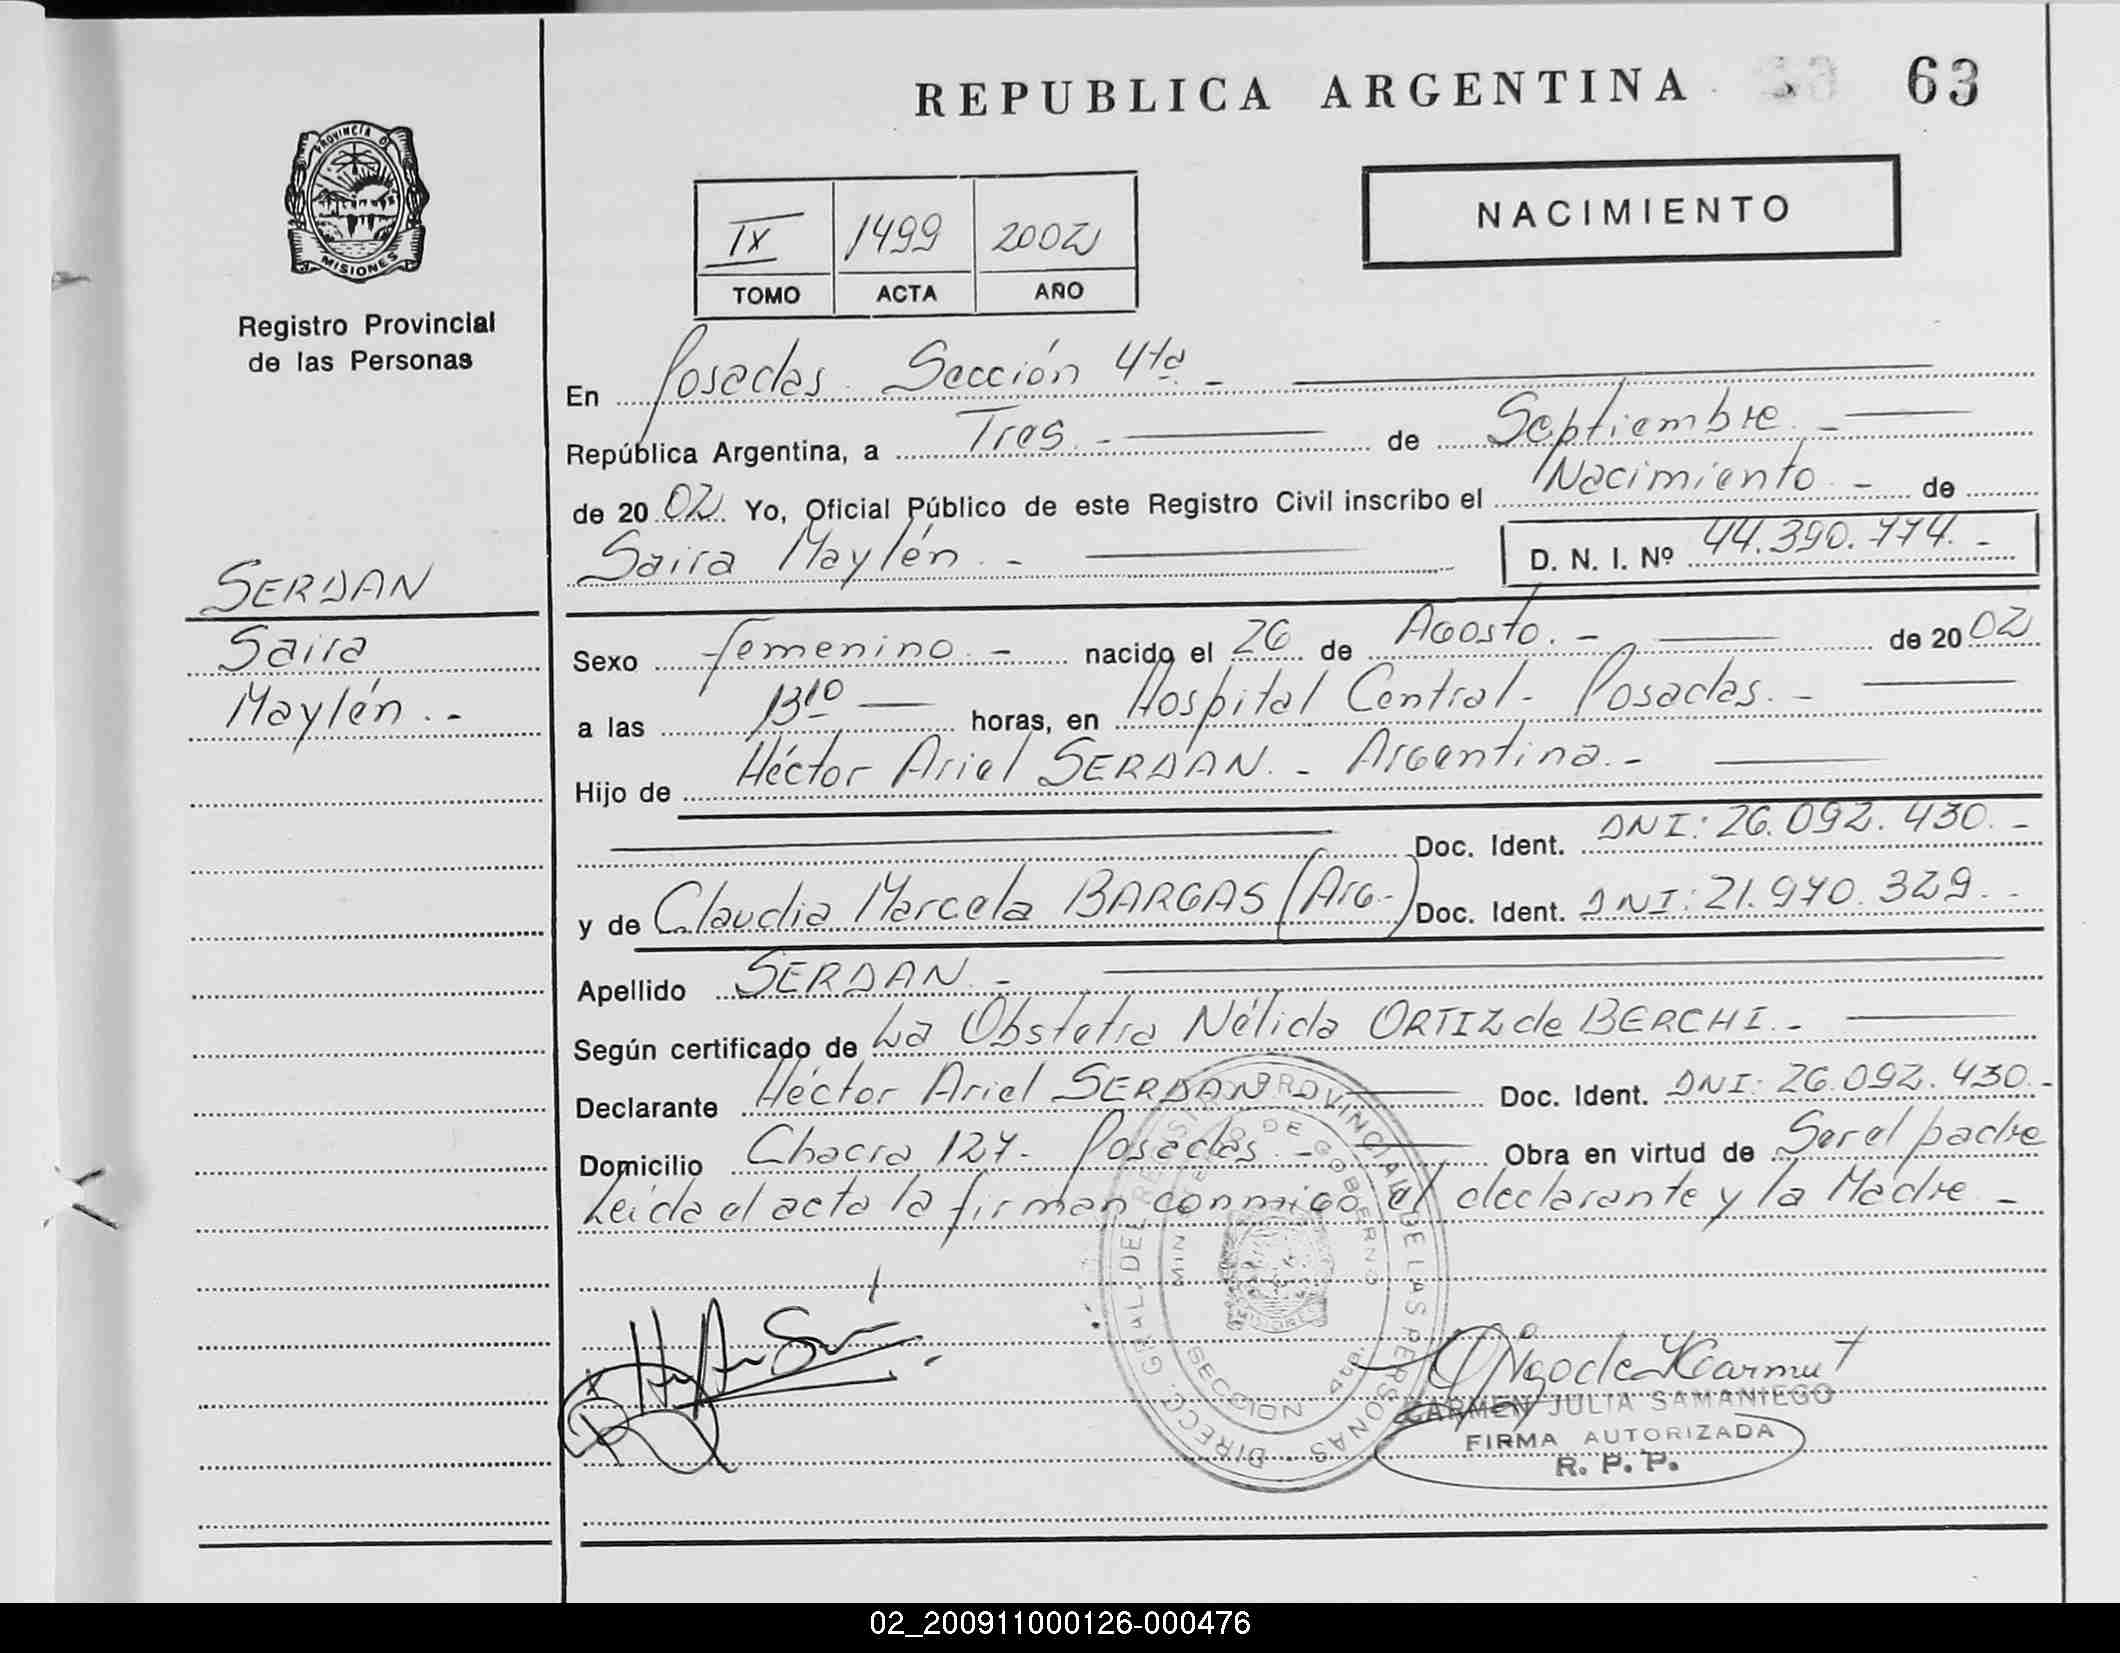 REPUBLICA ARGENTINA 63
PROVINCIA DE
MISIONES
Registro Provincial
de las Personas
NACIMIENTO
IX 1499 2002
TOMO ACTA AÑO
En Posadas. Sección 4ta -
República Argentina, a Tres. - de Septiembre. -
de 20 02 Yo, Oficial Público de este Registro Civil inscribo el Nacimiento. - de
Saira Maylén. - D. N. I. Nº 44.390.774. -
SERDAN
Saira
Maylén. -
Sexo femenino. - nacido el 26 de Agosto. - de 20 02
a las 13 10 horas, en Hospital Central - Posadas. -
Hijo de Héctor Ariel SERDAN. - Argentina. -
Doc. Ident. DNI: 26.092.430. -
y de Claudia Marcela BARGAS (Arg.-) Doc. Ident. DNI: 21.970.329. -
Apellido SERDAN. -
Según certificado de La Obstetra Nélida ORTIZ de BERCHI. -
Declarante Héctor Ariel SERDAN Doc. Ident. DNI: 26.092.430. -
Domicilio Chacra 127. Posadas. - Obra en virtud de Ser el padre
Leída el acta la firman conmigo el declarante y la Madre. -
DIRECC. GRAL. DE REGISTRO PROVINCIAL DE LAS PERSONAS
MINISTERIO DE GOBIERNO
SECCION 4ta.
CARMEN JULIA SAMANIEGO
FIRMA AUTORIZADA
R. P. P.
02_200911000126-000476